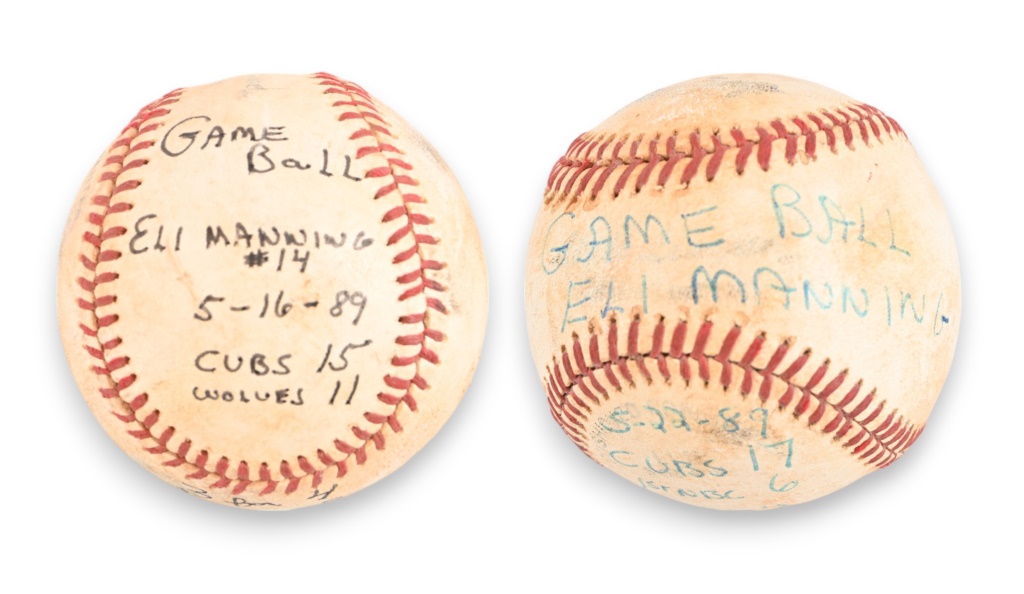 GAME
BaLL
ELI MANNING
#14
5-16-89
CUBS 15
WOLVES 11
GAME BALL
ELI MANNING
5-22-89
CUBS 17
1st NBC 6